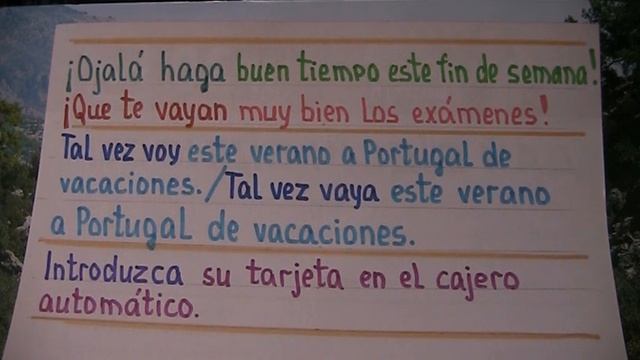 ¡Ojalá haga buen tiempo este fin de semana!
¡Que te vayan muy bien los exámenes!
Tal vez voy este verano a Portugal de
vacaciones./Tal vez vaya este verano
a Portugal de vacaciones.
Introduzca su tarjeta en el cajero
automático.